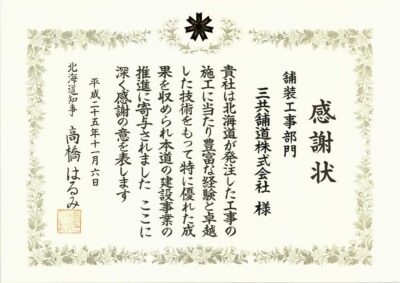 感謝状
舗装工事部門
三共舗道株式会社 様
貴社は北海道が発注した工事の
施工に当たり豊富な経験と卓越
した技術をもって特に優れた成
果を収められ本道の建設事業の
推進に寄与されました ここに
深く感謝の意を表します
平成二十五年十一月六日
北海道知事 高橋はるみ